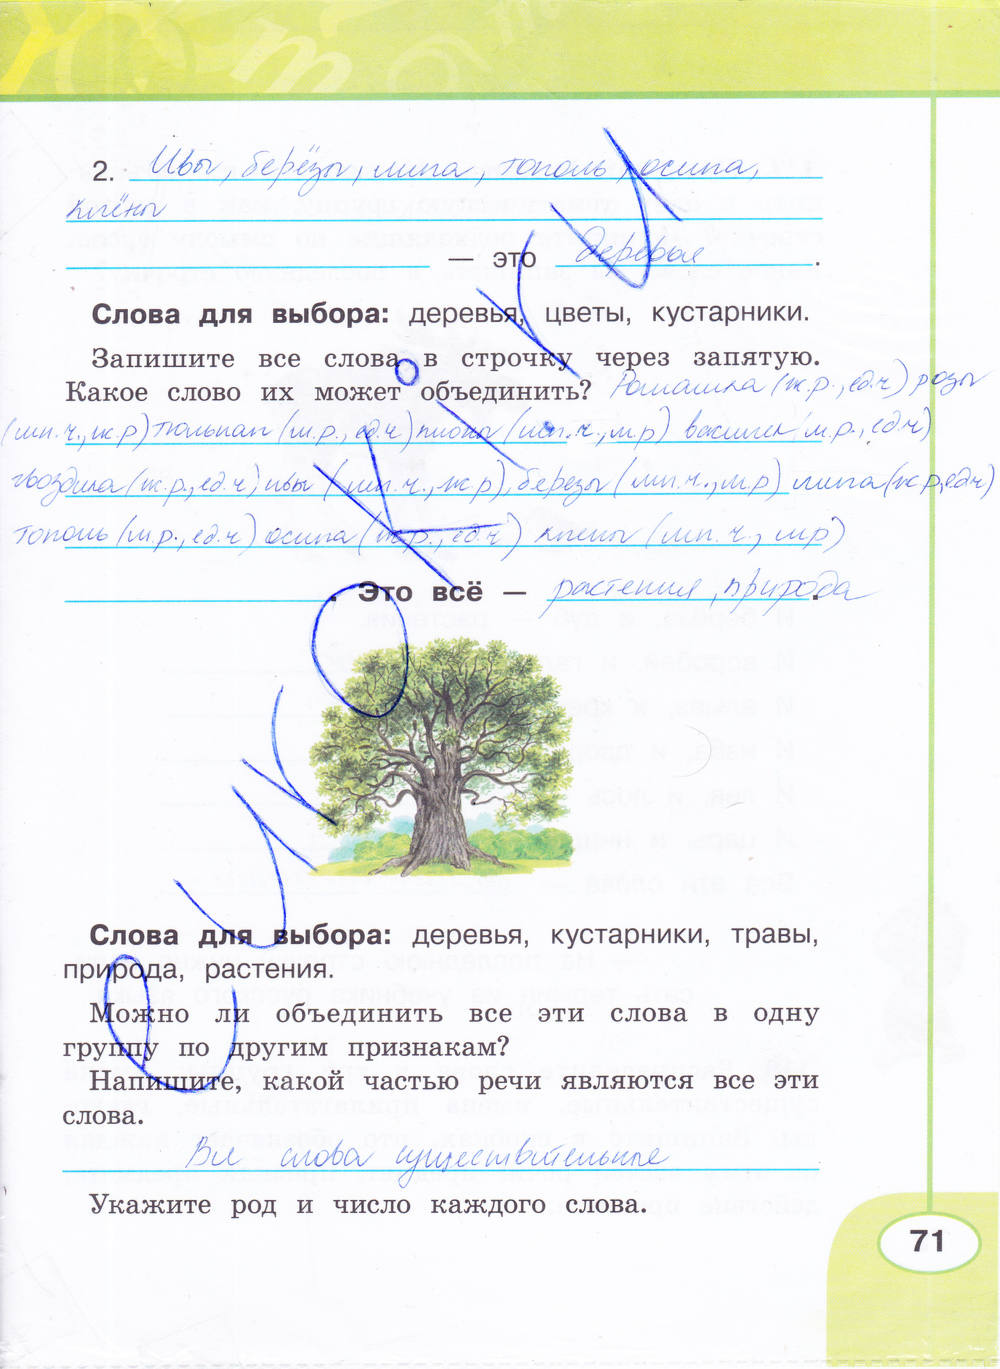 2. Ивы, берёзы, липа, тополь, осина,
клёны
— это деревья.
Слова для выбора: деревья, цветы, кустарники.
Запишите все слова в строчку через запятую.
Какое слово их может объединить? Ромашка (ж.р., ед.ч) розы
(мн.ч., ж.р) тюльпан (м.р., ед.ч) пионы (мн.ч., м.р) василек (м.р., ед.ч)
гвоздика (ж.р., ед.ч) ивы (мн.ч., ж.р), березы (мн.ч., м.р) липа (ж.р, ед.ч)
тополь (м.р., ед.ч) осина (ж.р., ед.ч) клены (мн.ч., м.р)
. Это всё — растения, природа.
Слова для выбора: деревья, кустарники, травы,
природа, растения.
Можно ли объединить все эти слова в одну
группу по другим признакам?
Напишите, какой частью речи являются все эти
слова.
Все слова существительные
Укажите род и число каждого слова.
71